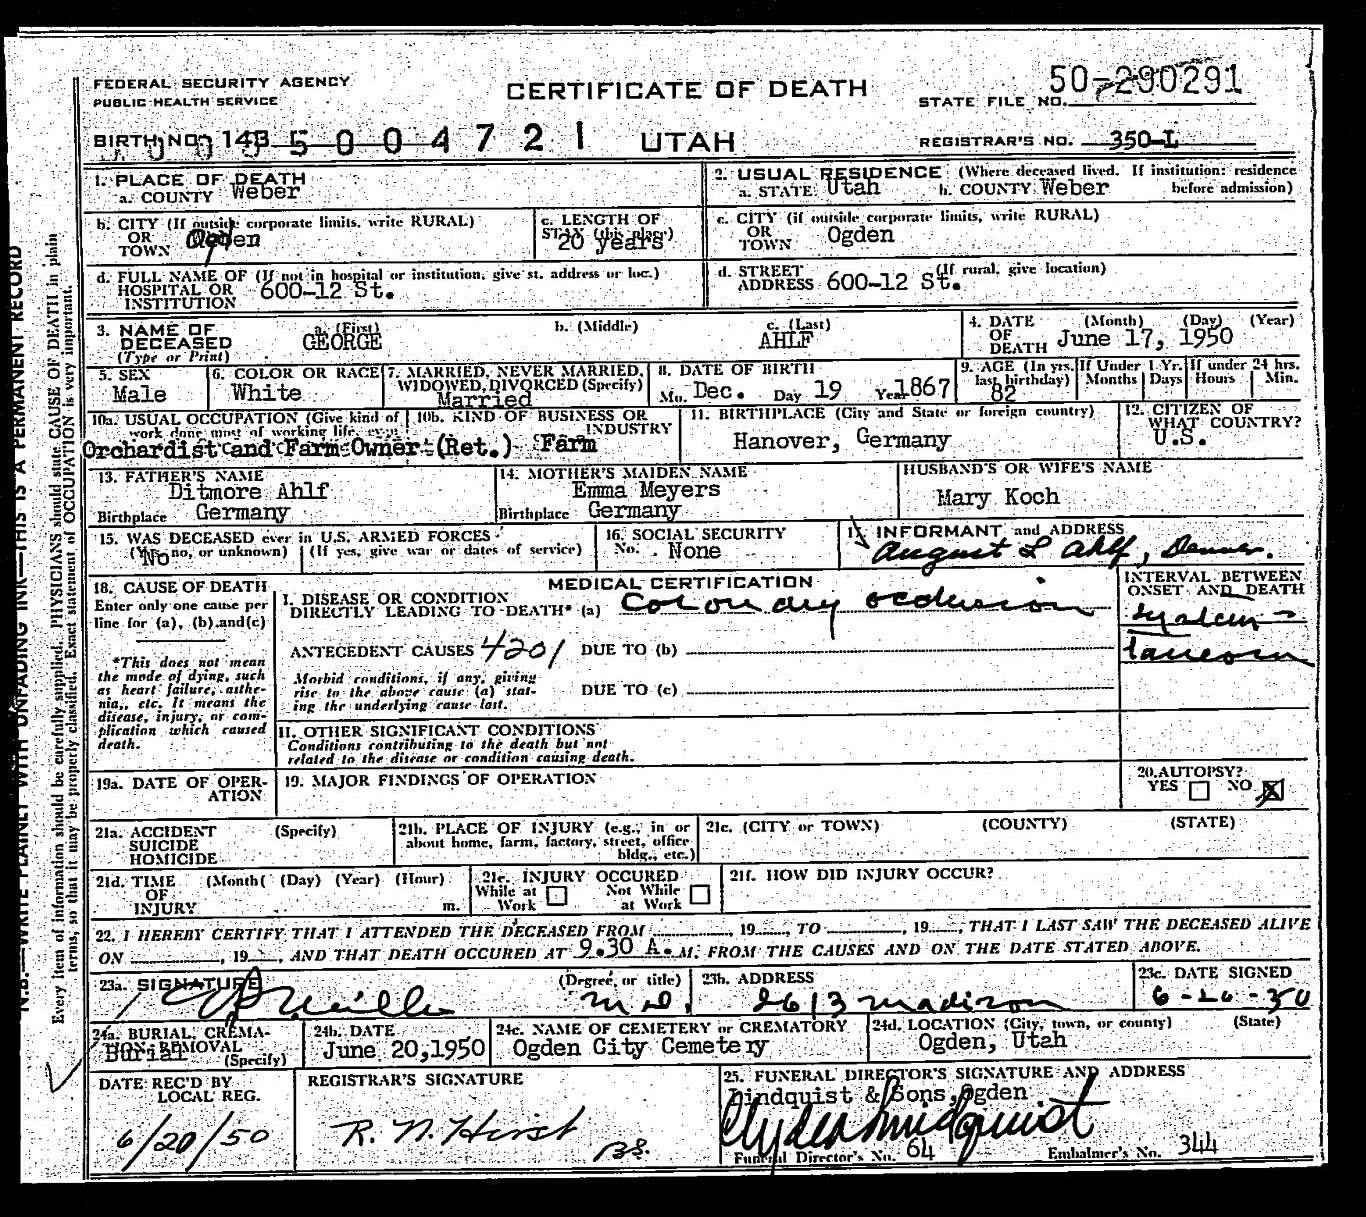 FEDERAL SECURITY AGENCY
PUBLIC HEALTH SERVICE
CERTIFICATE OF DEATH
STATE FILE NO. 50-290291
BIRTH NO. 143
5004721
UTAH
REGISTRAR'S NO. 350-L
1. PLACE OF DEATH
a. COUNTY Weber
2. USUAL RESIDENCE (Where deceased lived. If institution: residence before admission)
a. STATE Utah b. COUNTY Weber
b. CITY (If outside corporate limits, write RURAL)
OR TOWN Ogden
c. LENGTH OF STAY (this place)
20 years
c. CITY (if outside corporate limits, write RURAL)
OR TOWN Ogden
d. FULL NAME OF (If not in hospital or institution, give st. address or loc.)
HOSPITAL OR INSTITUTION 600-12 St.
d. STREET ADDRESS (If rural, give location)
600-12 St.
3. NAME OF DECEASED (Type or Print)
a. (First) b. (Middle) c. (Last)
GEORGE AHLF
4. DATE OF DEATH (Month) (Day) (Year)
June 17, 1950
5. SEX
Male
6. COLOR OR RACE
White
7. MARRIED, NEVER MARRIED, WIDOWED, DIVORCED (Specify)
Married
8. DATE OF BIRTH
Mo. Dec. Day 19 Year 1867
9. AGE (In yrs. last birthday)
82
If Under 1 Yr. Months Days
If under 24 hrs. Hours Min.
10a. USUAL OCCUPATION (Give kind of work done most of working life, even
Orchardist and Farm Owner (Ret.)
10b. KIND OF BUSINESS OR INDUSTRY
Farm
11. BIRTHPLACE (City and State or foreign country)
Hanover, Germany
12. CITIZEN OF WHAT COUNTRY?
U.S.
13. FATHER'S NAME
Ditmore Ahlf
Birthplace Germany
14. MOTHER'S MAIDEN NAME
Emma Meyers
Birthplace Germany
HUSBAND'S OR WIFE'S NAME
Mary Koch
15. WAS DECEASED ever in U.S. ARMED FORCES
(Yes, no, or unknown) (If yes, give war or dates of service)
No
16. SOCIAL SECURITY
No. None
17. INFORMANT and ADDRESS
August L Ahlf, Denver.
18. CAUSE OF DEATH
Enter only one cause per line for (a), (b), and (c)
*This does not mean the mode of dying, such as heart failure, asthenia, etc. It means the disease, injury, or complication which caused death.
MEDICAL CERTIFICATION
I. DISEASE OR CONDITION
DIRECTLY LEADING TO DEATH* (a) Coronary occlusion
ANTECEDENT CAUSES 4201 DUE TO (b)
Morbid conditions, if any, giving rise to the above cause (a) stating the underlying cause last.
DUE TO (c)
INTERVAL BETWEEN ONSET AND DEATH
II. OTHER SIGNIFICANT CONDITIONS
Conditions contributing to the death but not related to the disease or condition causing death.
19a. DATE OF OPERATION
19. MAJOR FINDINGS OF OPERATION
20. AUTOPSY?
YES NO X
21a. ACCIDENT SUICIDE HOMICIDE (Specify)
21b. PLACE OF INJURY (e.g., in or about home, farm, factory, street, office bldg., etc.)
21c. (CITY or TOWN) (COUNTY) (STATE)
21d. TIME OF INJURY (Month( (Day) (Year) (Hour) m.
21e. INJURY OCCURED
While at Work Not While at Work
21f. HOW DID INJURY OCCUR?
22. I HEREBY CERTIFY THAT I ATTENDED THE DECEASED FROM , 19 , TO , 19 , THAT I LAST SAW THE DECEASED ALIVE
ON , 19 , AND THAT DEATH OCCURED AT 9.30 A. M. FROM THE CAUSES AND ON THE DATE STATED ABOVE.
23a. SIGNATURE (Degree, or title)
M.D.
23b. ADDRESS
2613 Madison
23c. DATE SIGNED
6-20-50
24a. BURIAL, CREMATION, REMOVAL (Specify)
Burial
24b. DATE
June 20, 1950
24c. NAME OF CEMETERY or CREMATORY
Ogden City Cemetery
24d. LOCATION (City, town, or county) (State)
Ogden, Utah
DATE REC'D BY LOCAL REG.
6/20/50
REGISTRAR'S SIGNATURE
R. N. Hirst
BS.
25. FUNERAL DIRECTOR'S SIGNATURE AND ADDRESS
Lindquist & Sons, Ogden
Clyde Lindquist
Funeral Director's No. 64 Embalmer's No. 344
N.B.—WRITE PLAINLY WITH UNFADING INK—THIS IS A PERMANENT RECORD
Every item of information should be carefully supplied. PHYSICIANS should state CAUSE OF DEATH in plain
terms, so that it may be properly classified. Exact statement of OCCUPATION is very important.